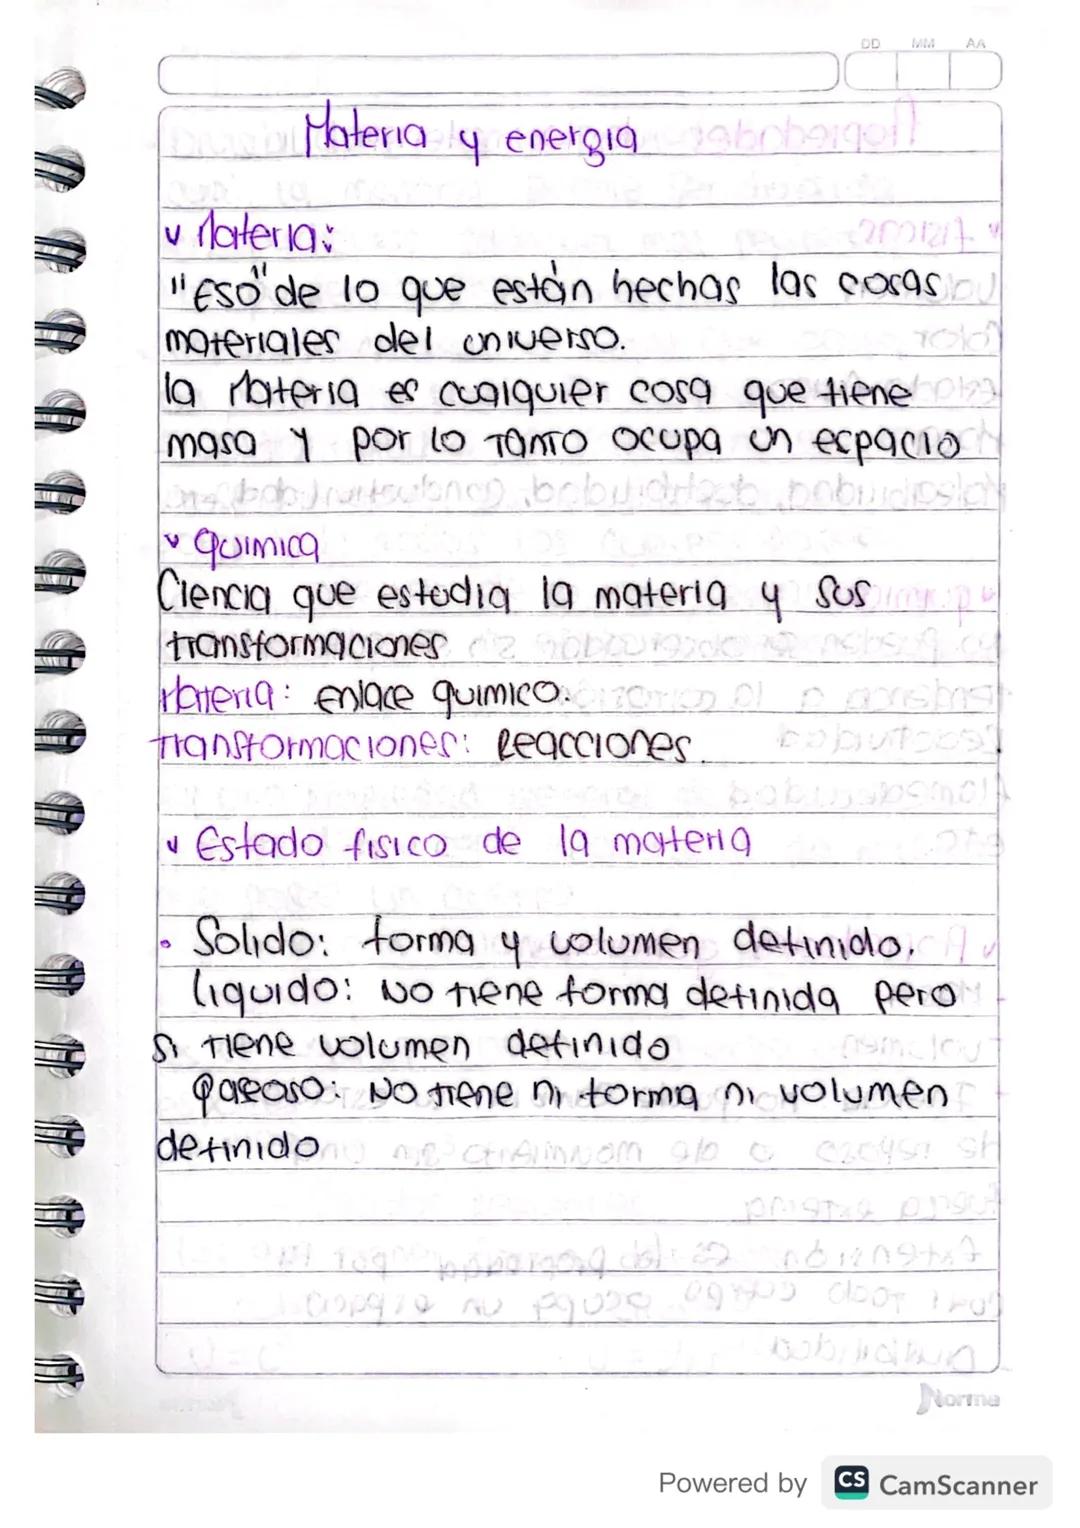 DD MM AA
Materia y energia
v Materia:
"Eso" de lo que están hechas las cosas
materiales del universo.
la Materia es cualquier cosa que tiene
masa y por lo tanto ocupa un espacio
v quimica
Ciencia que estudia la materia y sus
transformaciones
Materia: enlace quimico.
transformaciones: Reacciones.
v Estado fisico de la materia
• Solido: forma y volumen definido.
liquido: No tiene forma definida pero
si tiene volumen definido
gaseoso: No tiene ni forma ni volumen
definido
Norma
Powered by CS CamScanner